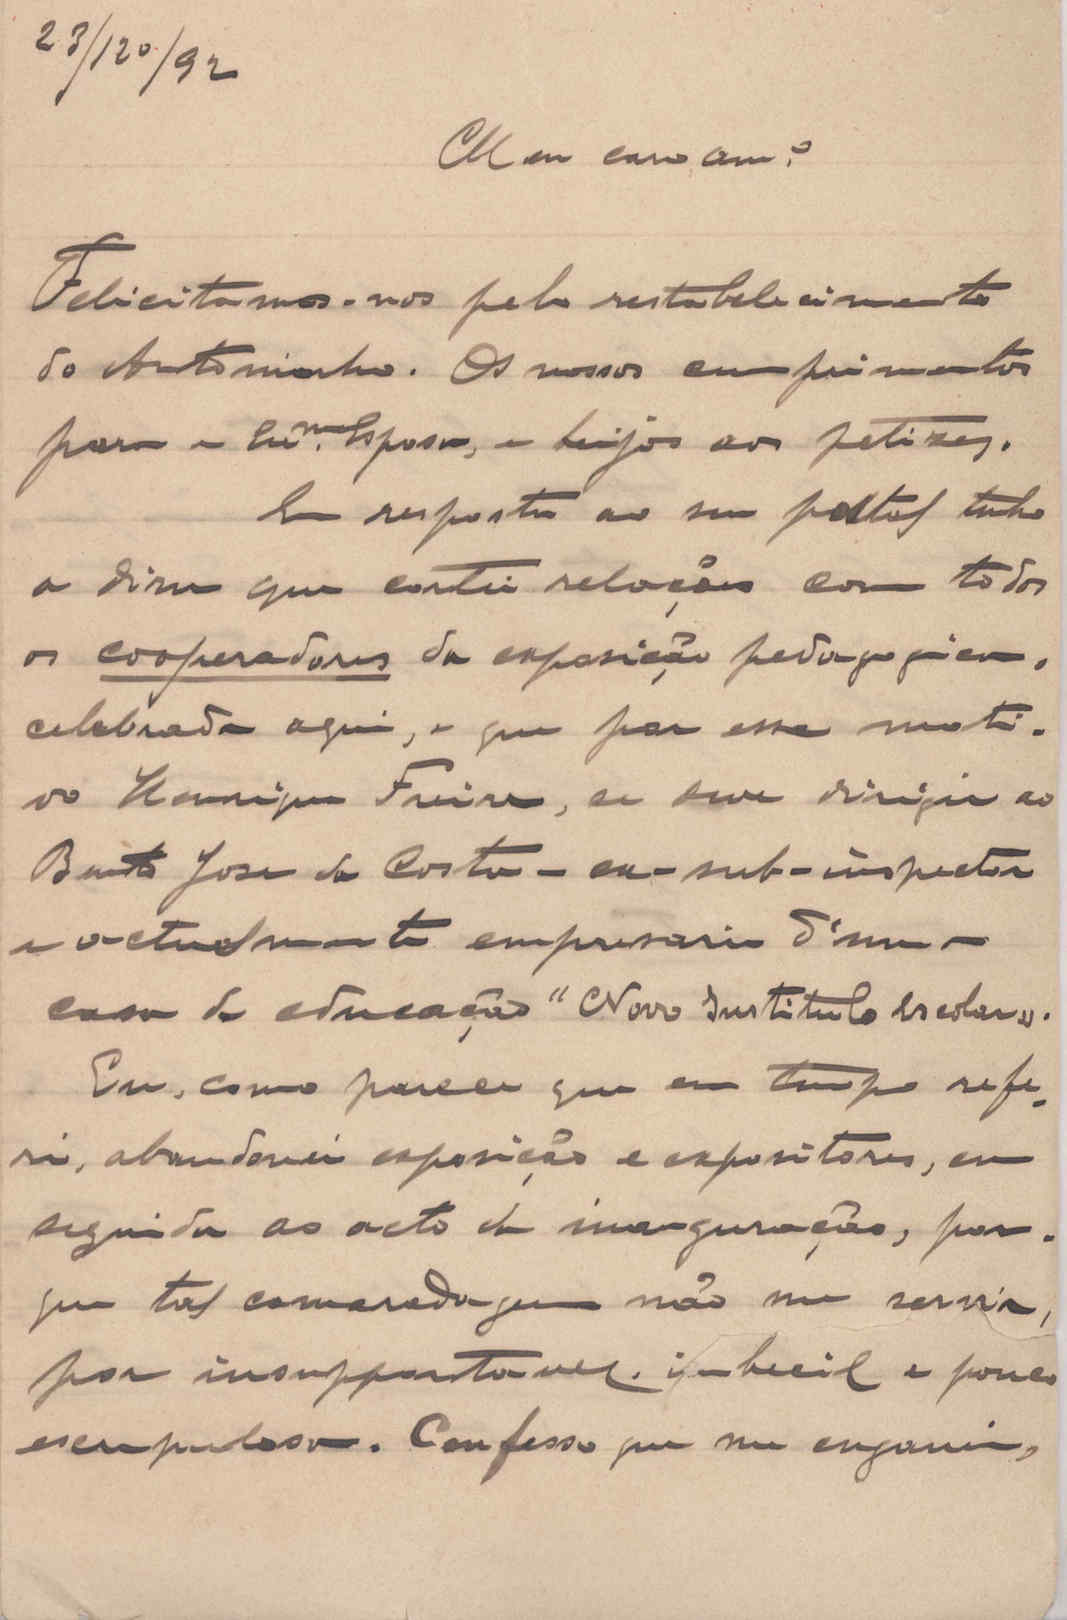 23/120/92
Meu caro am.º
Felicitamos-nos pelo restabelecimento
do Antoninho. Os nossos cumprimentos
para a Ex.ma Esposa, e beijos aos petizes.
Em resposta ao seu postal tenho
a dizer que cortei relações com todos
os cooperadores da exposição pedagogica,
celebrada aqui, e que por esse moti-
vo Henrique Freire, se deve dirigir ao
Bento José da Costa - ex-sub-inspector
e actualmente empresario d'uma
casa de educação "Novo Instituto Escolar".
Eu, como parece que em tempo refe-
ri, abandonei exposição e expositores, em
seguida ao acto da inauguração, por-
que tal camaradagem não me servia,
por insupportavel, imbecil e pouco
escrupulosa. Confesso que me enganei,